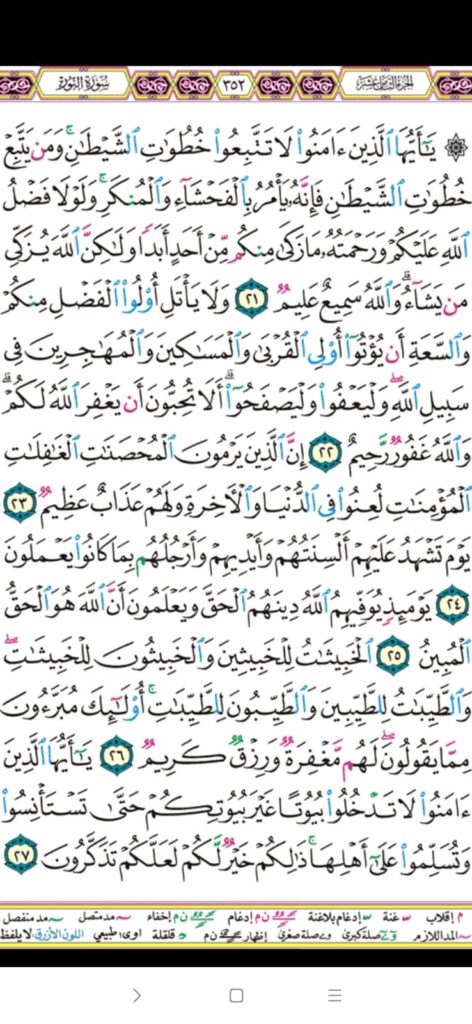 الجزء الثامن عشر ٣٥٢ سورة النور
۞ يَٰٓأَيُّهَا ٱلَّذِينَ ءَامَنُوا۟ لَا تَتَّبِعُوا۟ خُطُوَٰتِ ٱلشَّيْطَٰنِ ۚ وَمَن يَتَّبِعْ
خُطُوَٰتِ ٱلشَّيْطَٰنِ فَإِنَّهُۥ يَأْمُرُ بِٱلْفَحْشَآءِ وَٱلْمُنكَرِ ۚ وَلَوْلَا فَضْلُ
ٱللَّهِ عَلَيْكُمْ وَرَحْمَتُهُۥ مَا زَكَىٰ مِنكُم مِّنْ أَحَدٍ أَبَدًا وَلَٰكِنَّ ٱللَّهَ يُزَكِّى
مَن يَشَآءُ ۗ وَٱللَّهُ سَمِيعٌ عَلِيمٌ ٢١ وَلَا يَأْتَلِ أُو۟لُوا۟ ٱلْفَضْلِ مِنكُمْ
وَٱلسَّعَةِ أَن يُؤْتُوٓا۟ أُو۟لِى ٱلْقُرْبَىٰ وَٱلْمَسَٰكِينَ وَٱلْمُهَٰجِرِينَ فِى
سَبِيلِ ٱللَّهِ ۖ وَلْيَعْفُوا۟ وَلْيَصْفَحُوٓا۟ ۗ أَلَا تُحِبُّونَ أَن يَغْفِرَ ٱللَّهُ لَكُمْ ۗ
وَٱللَّهُ غَفُورٌ رَّحِيمٌ ٢٢ إِنَّ ٱلَّذِينَ يَرْمُونَ ٱلْمُحْصَنَٰتِ ٱلْغَٰفِلَٰتِ
ٱلْمُؤْمِنَٰتِ لُعِنُوا۟ فِى ٱلدُّنْيَا وَٱلْءَاخِرَةِ وَلَهُمْ عَذَابٌ عَظِيمٌ ٢٣
يَوْمَ تَشْهَدُ عَلَيْهِمْ أَلْسِنَتُهُمْ وَأَيْدِيهِمْ وَأَرْجُلُهُم بِمَا كَانُوا۟ يَعْمَلُونَ
٢٤ يَوْمَئِذٍ يُوَفِّيهِمُ ٱللَّهُ دِينَهُمُ ٱلْحَقَّ وَيَعْلَمُونَ أَنَّ ٱللَّهَ هُوَ ٱلْحَقُّ
ٱلْمُبِينُ ٢٥ ٱلْخَبِيثَٰتُ لِلْخَبِيثِينَ وَٱلْخَبِيثُونَ لِلْخَبِيثَٰتِ ۖ
وَٱلطَّيِّبَٰتُ لِلطَّيِّبِينَ وَٱلطَّيِّبُونَ لِلطَّيِّبَٰتِ ۚ أُو۟لَٰٓئِكَ مُبَرَّءُونَ
مِمَّا يَقُولُونَ ۖ لَهُم مَّغْفِرَةٌ وَرِزْقٌ كَرِيمٌ ٢٦ يَٰٓأَيُّهَا ٱلَّذِينَ
ءَامَنُوا۟ لَا تَدْخُلُوا۟ بُيُوتًا غَيْرَ بُيُوتِكُمْ حَتَّىٰ تَسْتَأْنِسُوا۟
وَتُسَلِّمُوا۟ عَلَىٰٓ أَهْلِهَا ۚ ذَٰلِكُمْ خَيْرٌ لَّكُمْ لَعَلَّكُمْ تَذَكَّرُونَ ٢٧
م إقلاب غنة إدغام بلاغنة ن م إدغام ن م إخفاء مد متصل مد منفصل
المد اللازم صلة كبرى صلة صغرى إظهار ن م قلقلة اوى: طبيعي اللون الأزرق: لا يلفظ